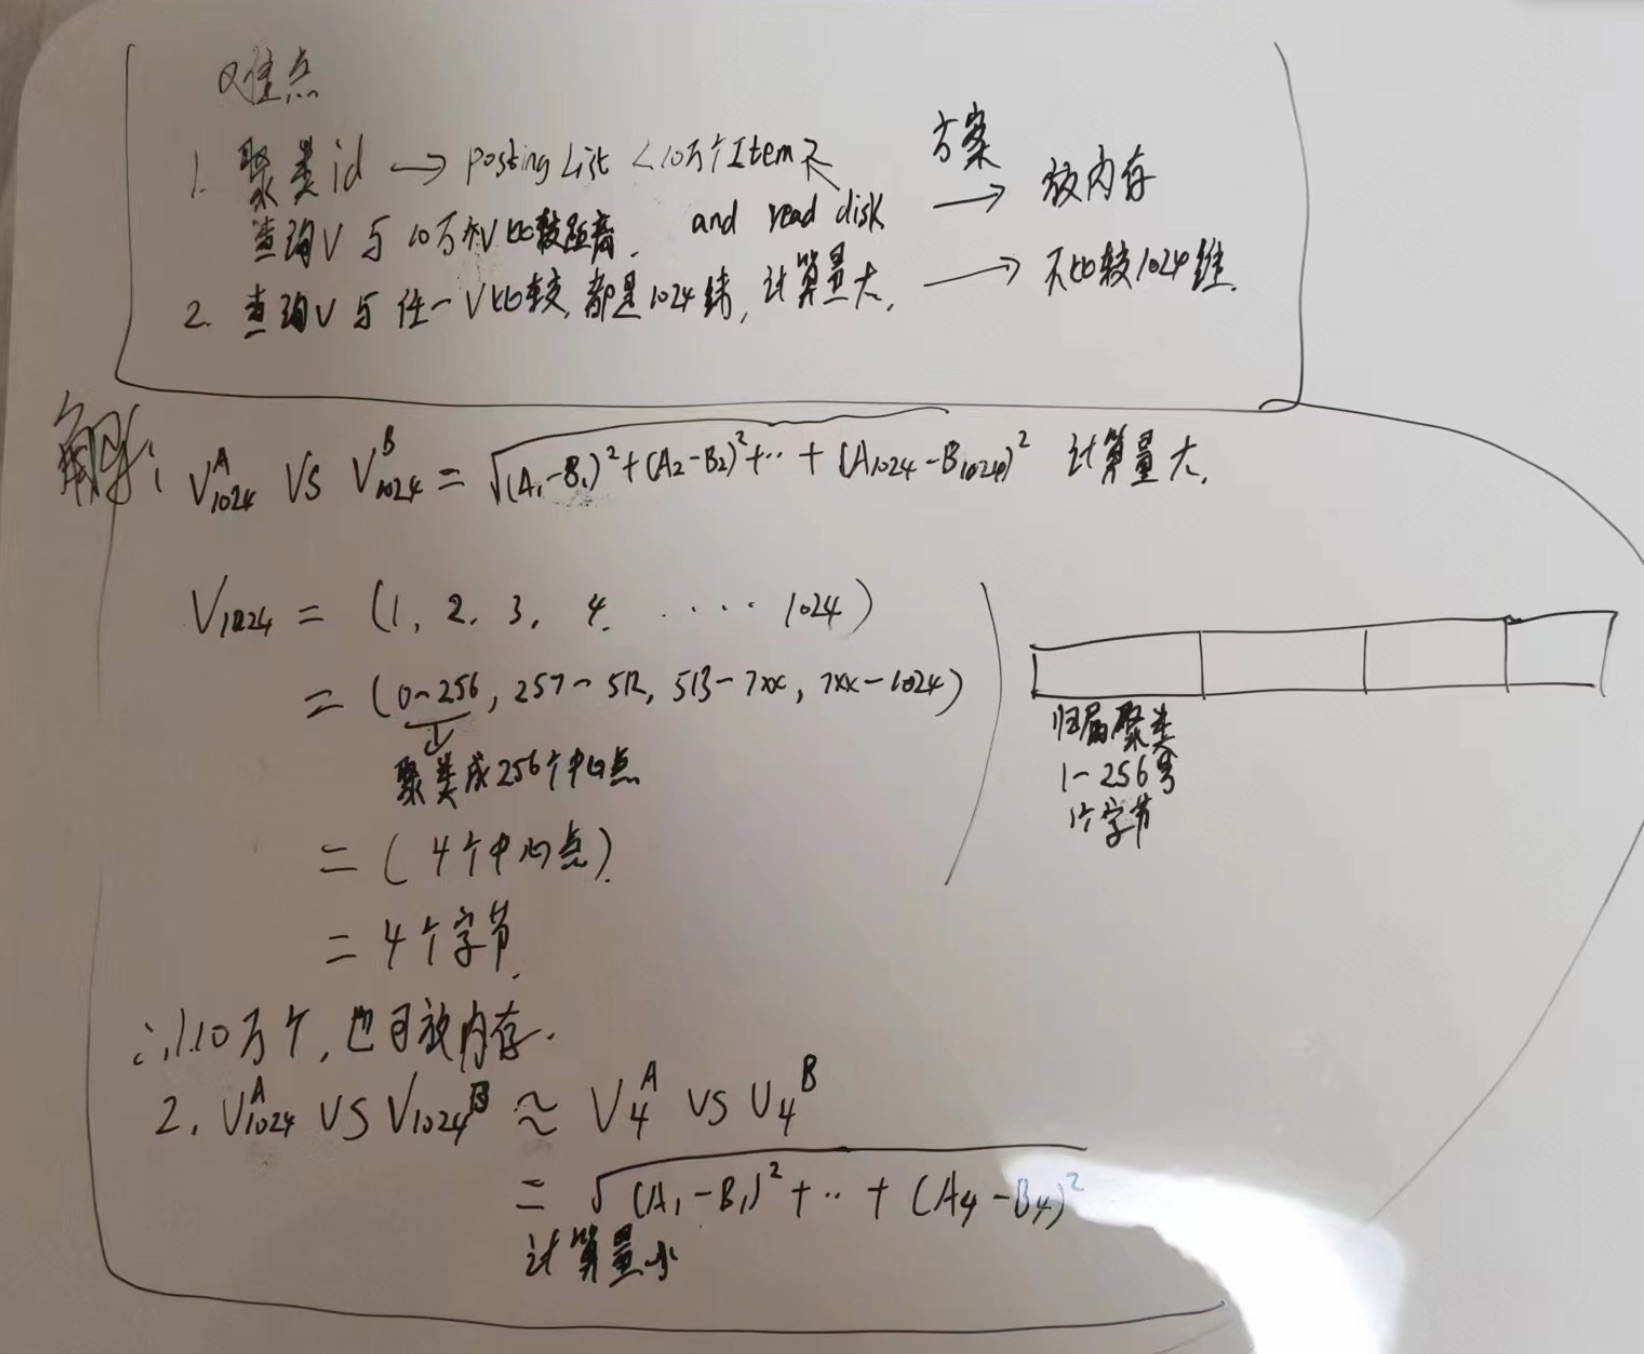 难点
1. 聚类id → posting List <10万个Item 方案
查询V 与 10万个V比较距离. and read disk → 放内存
2. 查询V与任一V比较,都是1024维,计算量大. → 不比较1024维.
解: V₁₀₂₄ᴬ VS V₁₀₂₄ᴮ = √(A₁-B₁)²+(A₂-B₂)²+··+(A₁₀₂₄-B₁₀₂₄)² 计算量大.
V₁₀₂₄ = (1, 2, 3, 4, ····· 1024)
= (0~256, 257~512, 513-7xx, 7xx-1024)
↓
聚类成256个中心点
= (4个中心点).
= 4个字节.
归属聚类
1-256号
1个字节
∴ 1.10万个,也可放内存.
2. V₁₀₂₄ᴬ VS V₁₀₂₄ᴮ ≈ V₄ᴬ VS V₄ᴮ
= √(A₁-B₁)²+··+(A₄-B₄)²
计算量小